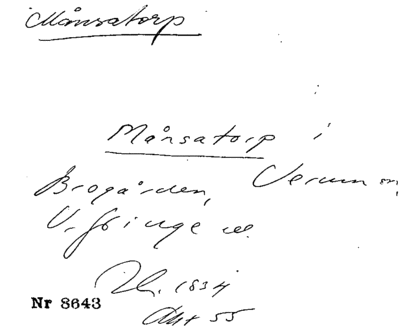 Månsatorp
Månsatorp i
Brogården, Verum sn,
V. Göinge
1834
Nr 8643
Akt 55